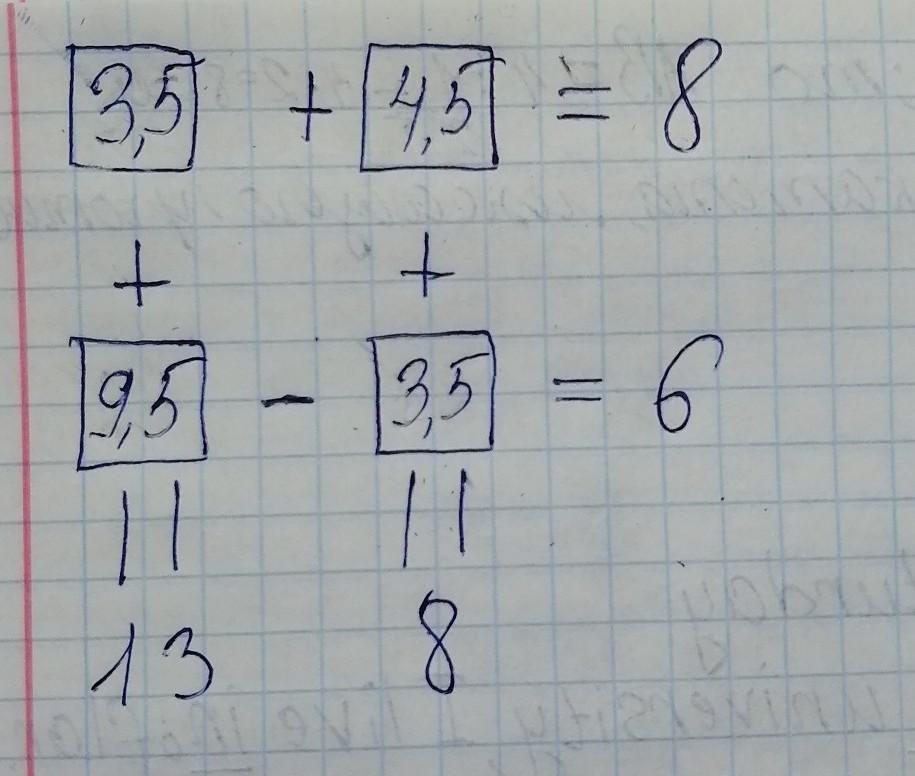 3,5 + 4,5 = 8
+ +
9,5 - 3,5 = 6
|| ||
13 8